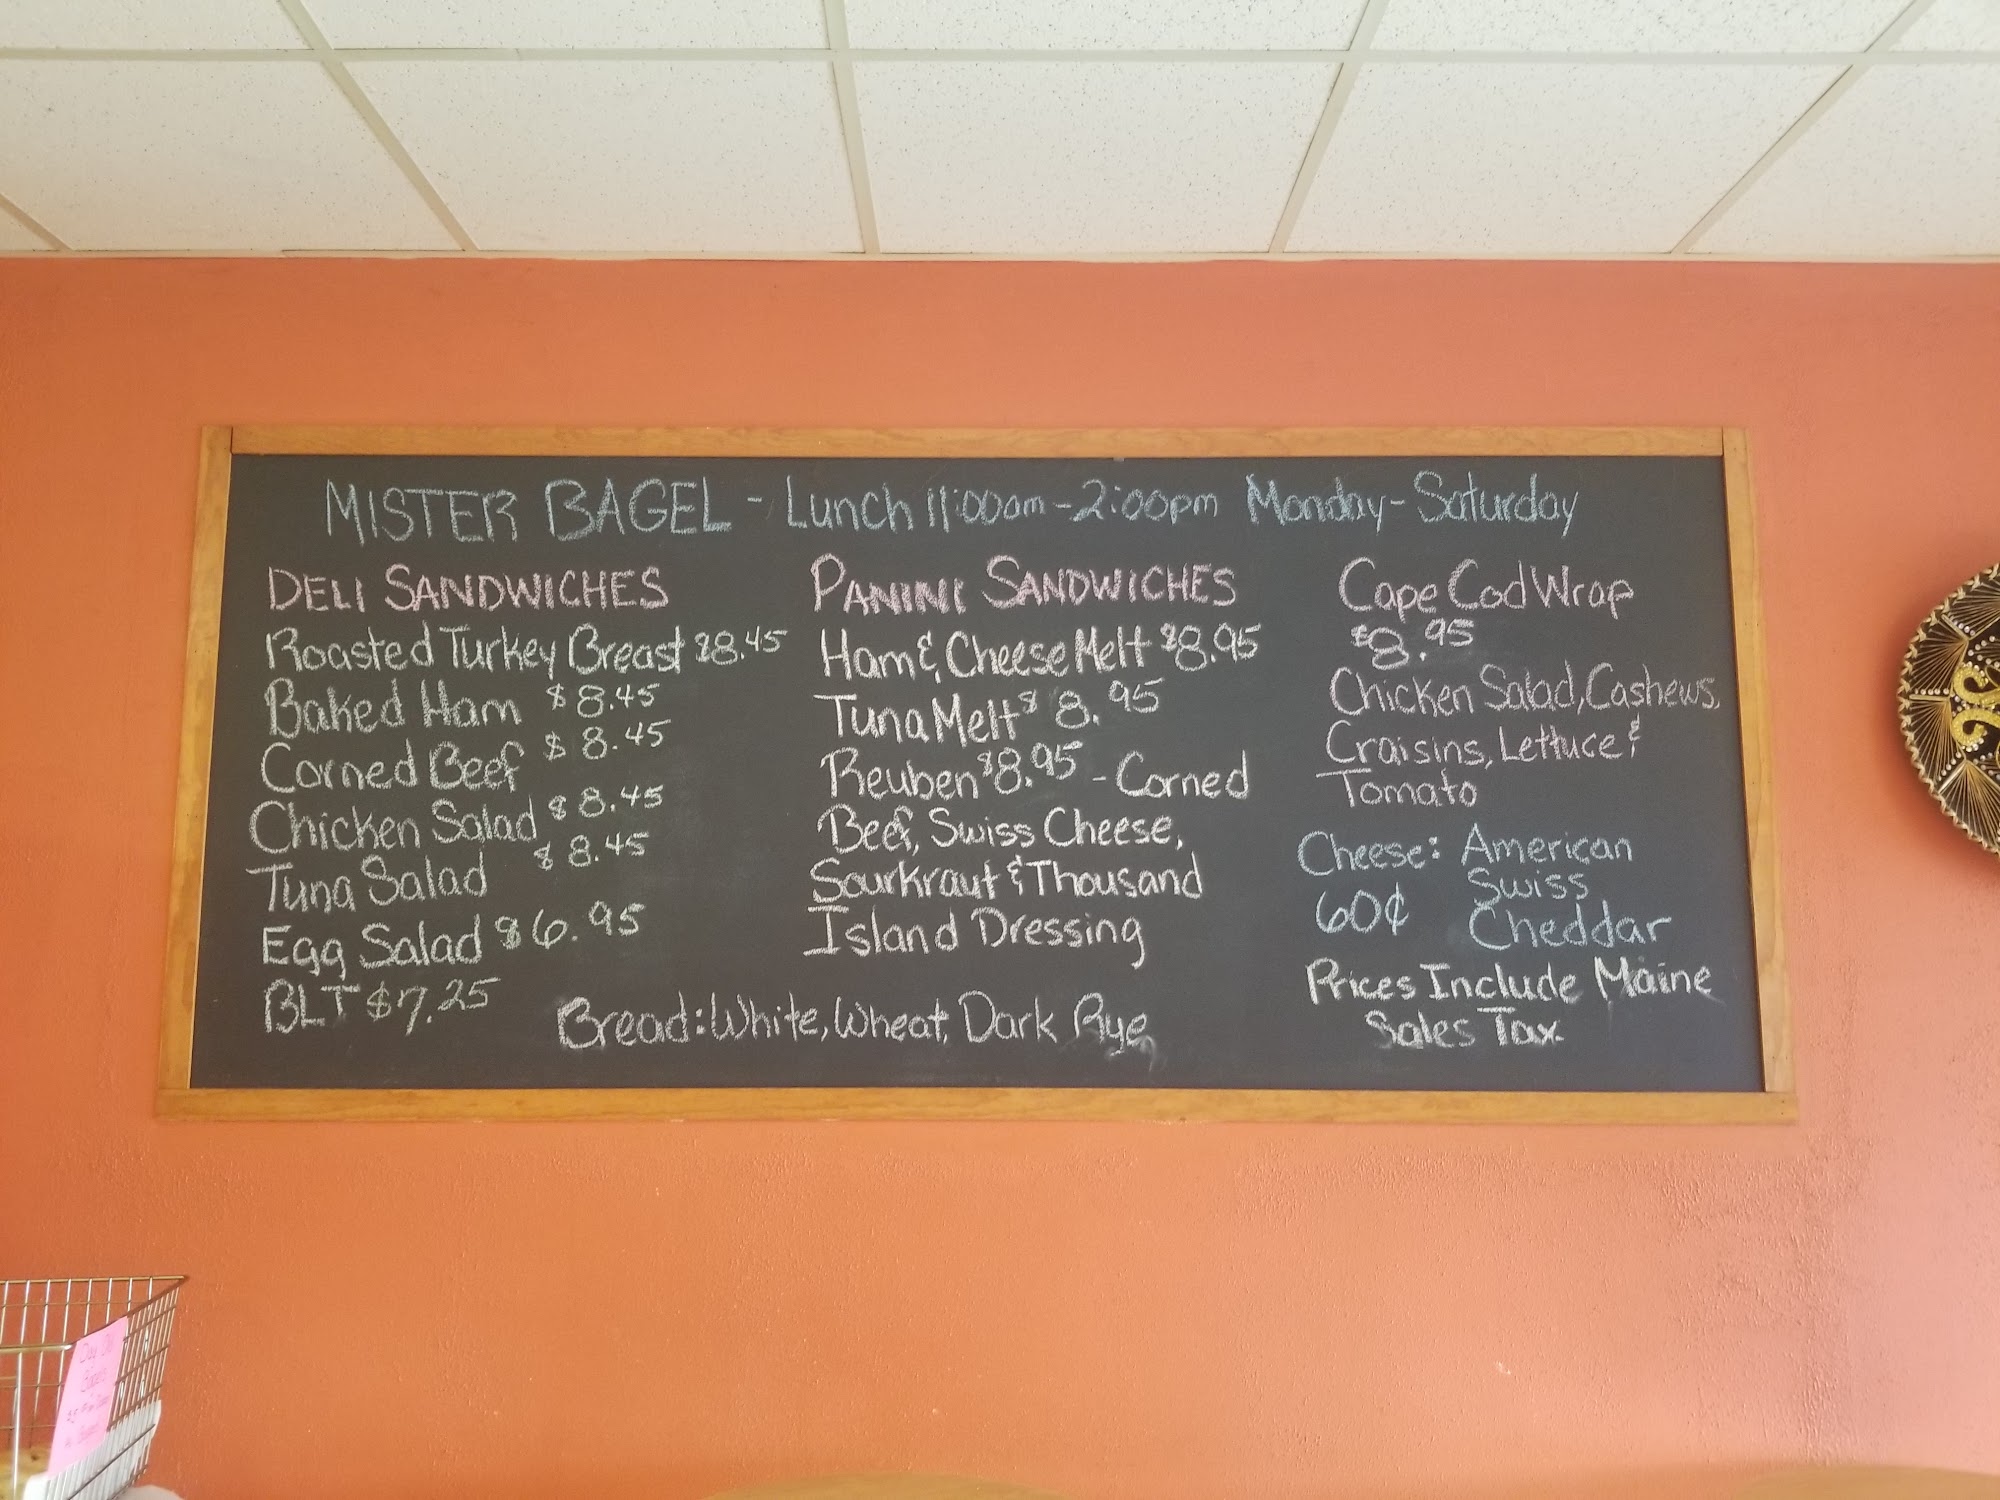 MISTER BAGEL - Lunch 11:00am - 2:00pm Monday - Saturday
DELI SANDWICHES
Roasted Turkey Breast $8.45
Baked Ham $8.45
Corned Beef $8.45
Chicken Salad $8.45
Tuna Salad $8.45
Egg Salad $6.95
BLT $7.25
PANINI SANDWICHES
Ham & Cheese Melt $8.95
Tuna Melt $8.95
Reuben $8.95 - Corned
Beef, Swiss Cheese,
Sourkraut & Thousand
Island Dressing
Bread: White, Wheat, Dark Rye
Cape Cod Wrap
$8.95
Chicken Salad, Cashews,
Craisins, Lettuce &
Tomato
Cheese: American
Swiss
60¢ Cheddar
Prices Include Maine
Sales Tax.
Day Old
Bagels